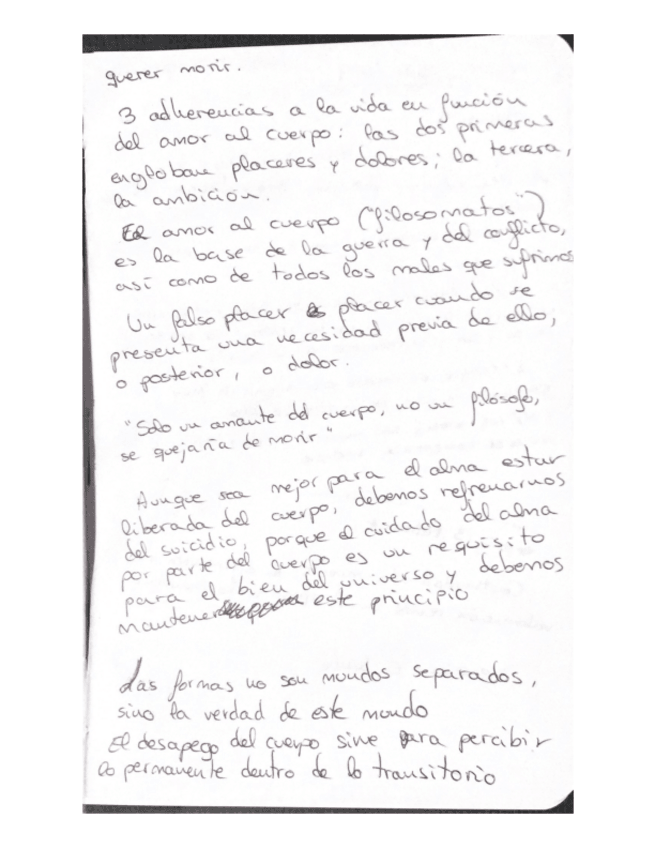 querer morir.
3 adherencias a la vida en función
del amor al cuerpo: las dos primeras
engloban placeres y dolores; la tercera,
la ambición.
El amor al cuerpo ("filosomatos")
es la base de la guerra y del conflicto,
así como de todos los males que sufrimos
Un falso placer es placer cuando se
presenta una necesidad previa de ello,
o posterior, o dolor.
"Solo un amante del cuerpo, no un filósofo,
se quejaría de morir"
Aunque sea mejor para el alma estar
liberada del cuerpo, debemos refrenarnos
del suicidio, porque el cuidado del alma
por parte del cuerpo es un requisito
para el bien del universo y debemos
mantener este principio
Las formas no son mundos separados,
sino la verdad de este mundo
El desapego del cuerpo sirve para percibir
lo permanente dentro de lo transitorio